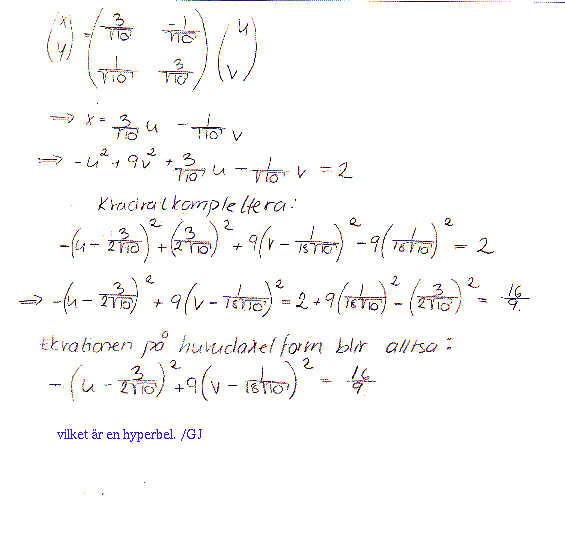 (x y) = (3/√10 -1/√10 1/√10 3/√10) (u v)
⇒ x = 3/√10 u - 1/√10 v
⇒ -u² + 9v² + 3/√10 u - 1/√10 v = 2
Kvadratkomplettera:
-(u - 3/2√10)² + (3/2√10)² + 9(v - 1/18√10)² - 9(1/18√10)² = 2
⇒ -(u - 3/2√10)² + 9(v - 1/18√10)² = 2 + 9(1/18√10)² - (3/2√10)² = 16/9
Ekvationen på huvudaxelform blir alltså:
-(u - 3/2√10)² + 9(v - 1/18√10)² = 16/9
vilket är en hyperbel. /GJ